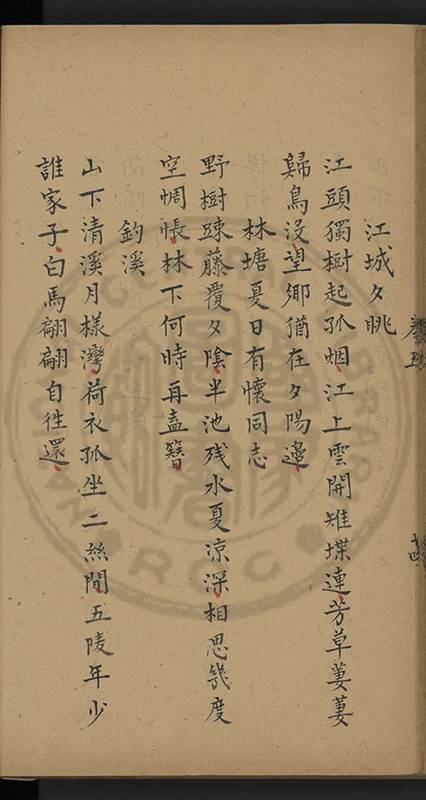 江城夕眺
江頭獨樹起孤烟江上雲開雉堞連芳草萋萋
歸鳥没望鄉猶在夕陽邊
林塘夏日有懷同志
野樹疎藤覆夕陰半池残水夏凉深相思幾度
空惆悵林下何時再盍簪
釣溪
山下清溪月樣灣荷衣孤坐二絲間五陵年少
誰家子白馬翩翩自徃還